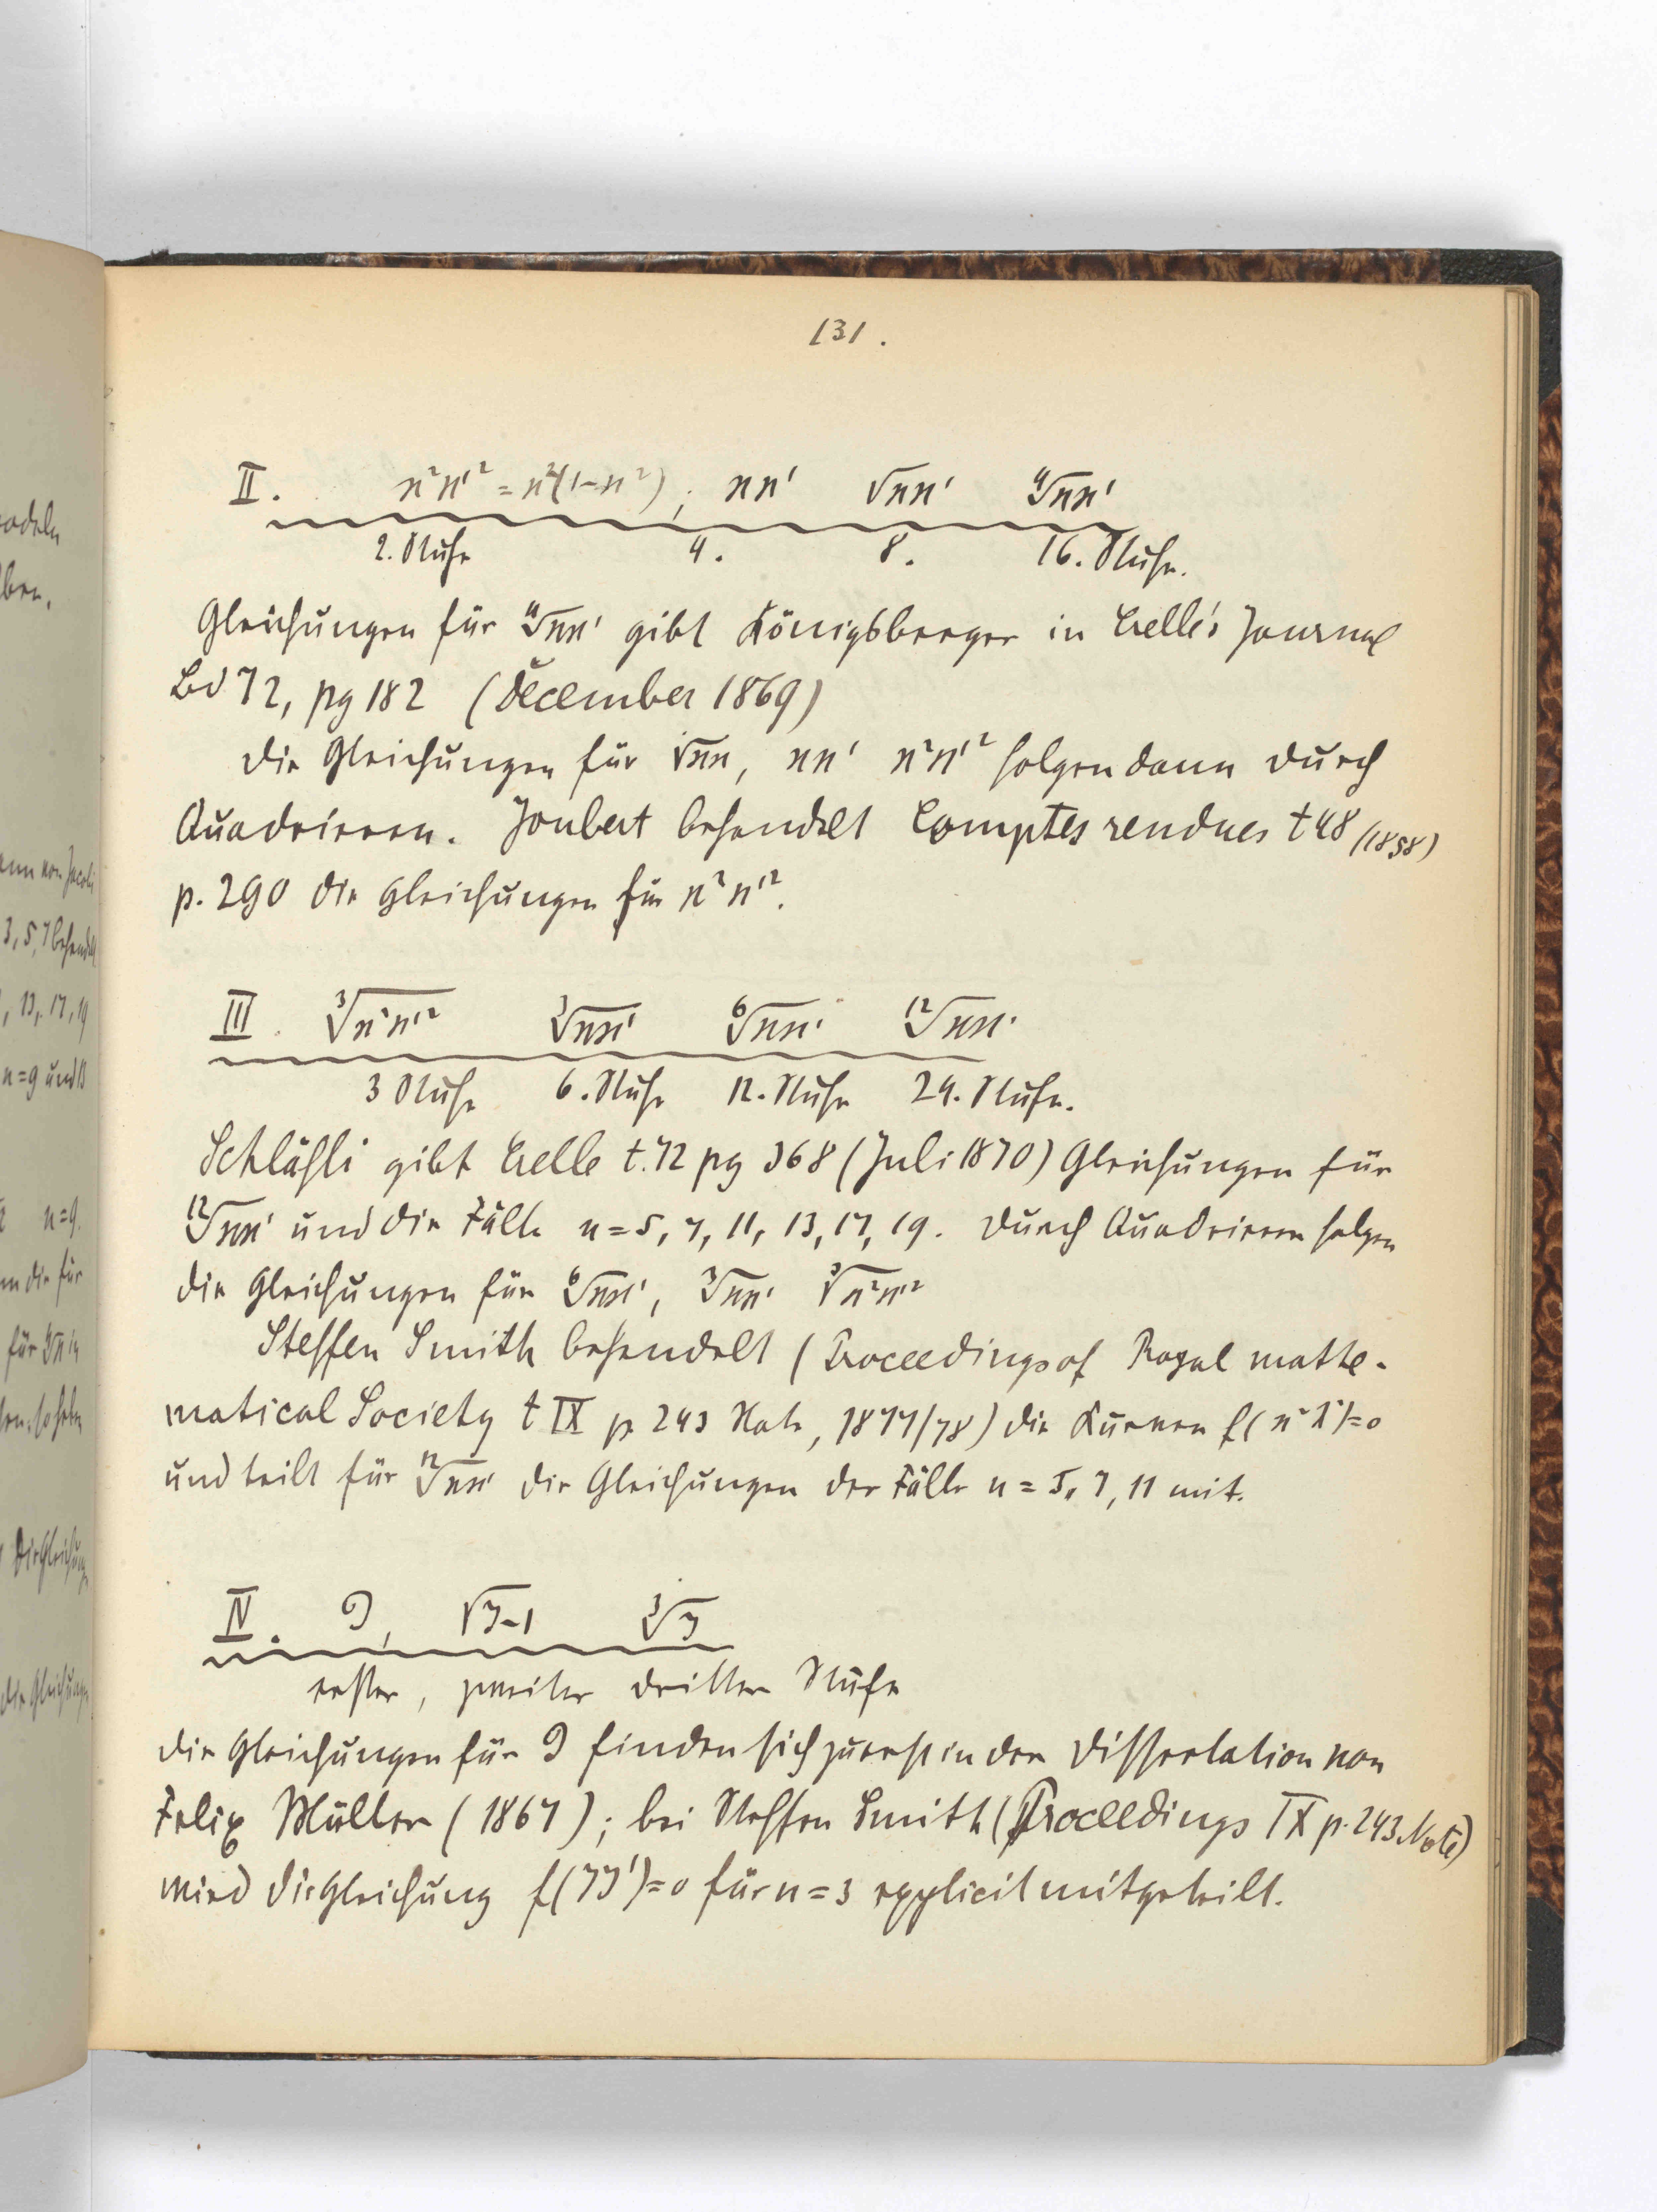 131.
II. ϰ²ϰ'² = ϰ²(1-ϰ²), ϰϰ' √ϰϰ' ⁴√ϰϰ'
2. Stufe 4. 8. 16. Stufe.
Gleichungen für ⁴√ϰϰ' gibt Königsberger in Crelle's Journal
Bd 72, pg 182 (December 1869)
Die Gleichungen für √ϰϰ, ϰϰ' ϰ²ϰ'² folgen dann durch
Quadrieren. Joubert behandelt Comptes rendues t 48 (1858)
p. 290 die Gleichungen für ϰ²ϰ'².
III. ³√ϰ²ϰ'² ³√ϰϰ' ⁶√ϰϰ' ¹²√ϰϰ'
3 Stufe 6. Stufe 12. Stufe 24. Stufe.
Schläfli gibt Crelle t. 72 pg 368 (Juli 1870) Gleichungen für
¹²√ϰϰ' und die Fälle n = 5, 7, 11, 13, 17, 19. Durch Quadrieren folgen
die Gleichungen für ⁶√ϰϰ', ³√ϰϰ' ³√ϰ²ϰ'²
Steffen Smith behandelt (Proceedings of Royal mathe-
matical Society t IX p 243 Note, 1877/78) die Kurven f(ϰ² λ²)=0
und teilt für ¹²√ϰϰ' die Gleichungen der Fälle n = 5, 7, 11 mit.
IV. J, √J-1 ³√J
erster, zweiter dritter Stufe
Die Gleichungen für J finden sich zuerst in der Dissertation von
Felix Müller (1867); bei Steffen Smith (Proceedings IX p. 243 Note)
wird die Gleichung f(JJ')=0 für n=3 explicit mitgeteilt.